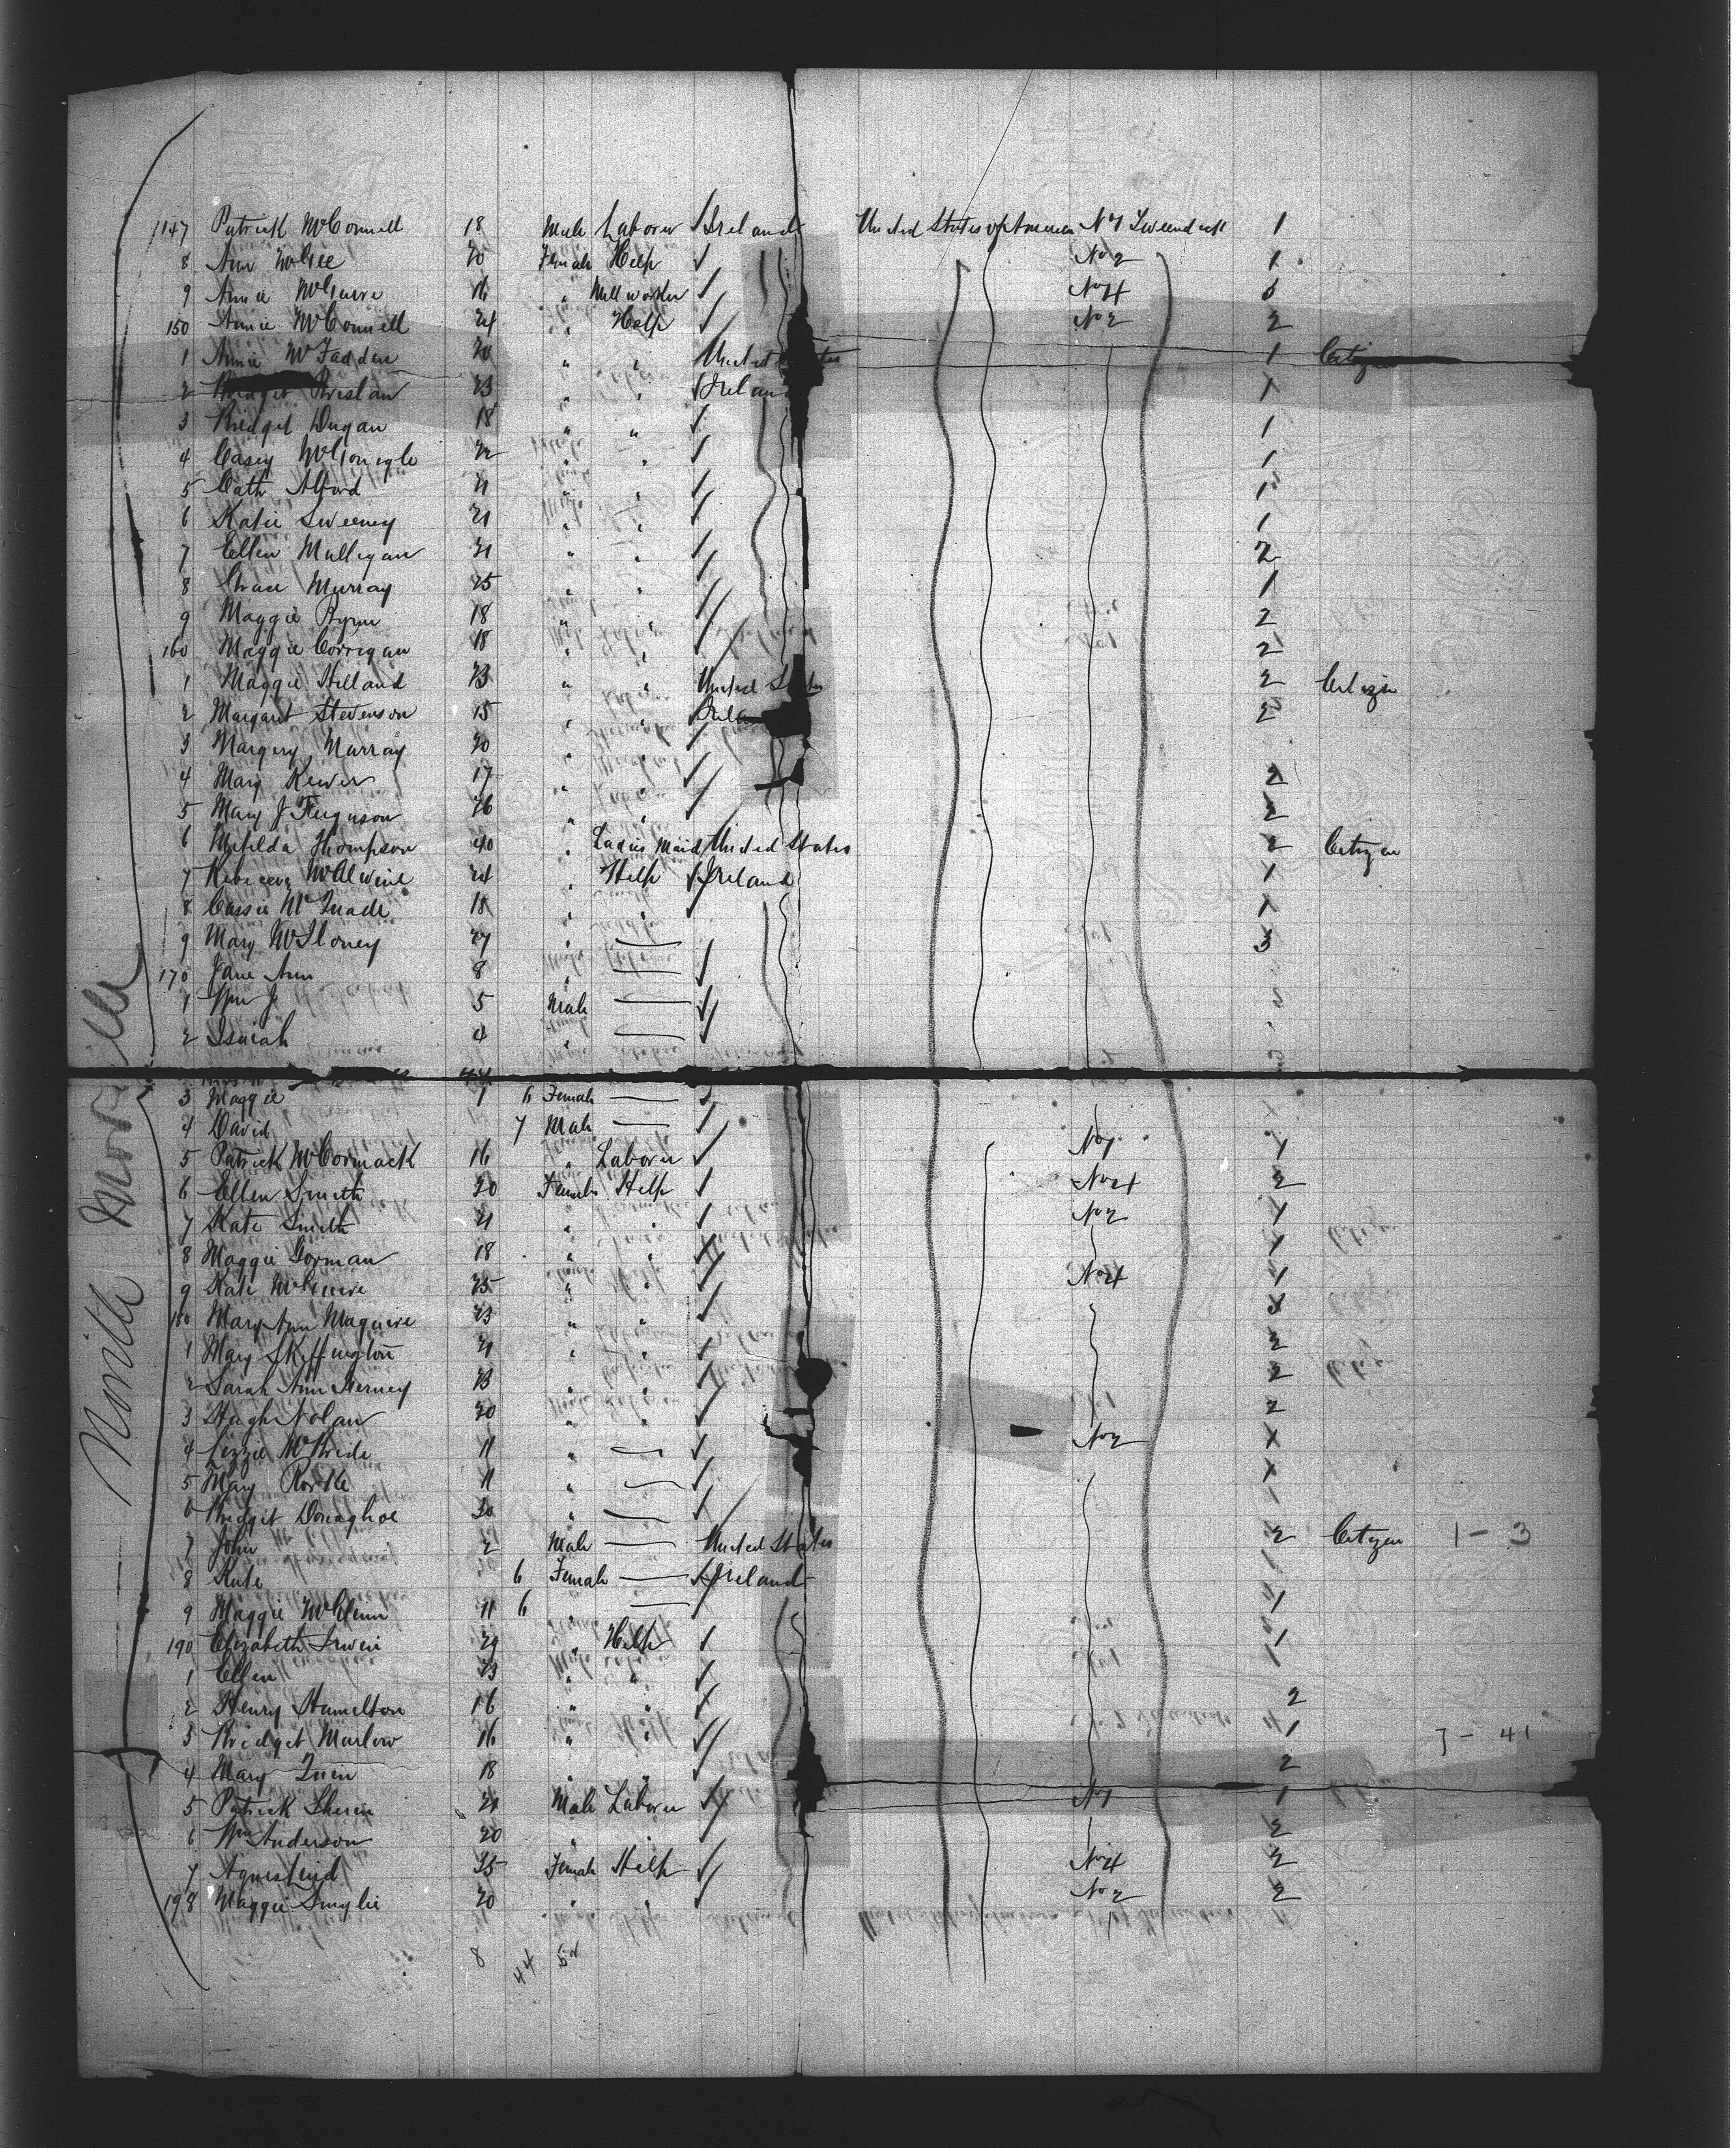 1147 Patrick McConnell 18 Male Laborer Ireland United States of America No 1 1
8 Ann McGee 20 Female Help No 2 1
9 Annie McGuire 16 " Mill worker No 4 3
150 Annie McConnell 24 " Help No 2 2
1 Annie McFadden 20 " " United States 1 Citizen
2 Bridget Breslan 23 " " Ireland 1
3 Bridget Dugan 18 " " 1
4 Casey McGonigle 22 " " 1
5 Cath Alford 21 " " 1
6 Katie Sweeney 21 " " 1
7 Ellen Mulligan 21 " " 2
8 Grace Murray 25 " " 1
9 Maggie Byrne 18 " " 2
160 Maggie Corrigan 18 " " 2
1 Maggie Holland 23 " " United States 2 Citizen
2 Margaret Stevenson 15 " " Ireland 2
3 Margery Murray 20 "
4 Mary 17 " 2
5 Mary J Ferguson 26 " " 2
6 Matilda Thompson 40 " Ladies Maid United States 2 Citizen
7 Rebecca 24 " Help Ireland 1
8 Cassie McQuade 18 " " 1
9 Mary 27 " — 3
170 Jane Ann 8 " —
1 Wm J 5 Male —
2 Isaiah 4 " —
3 Maggie 1 6 Female —
4 David 7 Male —
5 Patrick McCormack 16 " Laborer No 1 1
6 Ellen Smith 20 Female Help No 4 2
7 Kate Smith 21 " " No 2 1
8 Maggie Gorman 18 " " 1
9 Kate McGuire 25 " " No 4 1
180 Mary Ann Maguire 23 " " 3
1 Mary Skeffington 21 " " 2
2 Sarah Ann 23 " " 2
3 Hugh Nolan 20 " " 2
4 Lizzie McBride 11 " — No 2 1
5 Mary Rorke 11 " — 1
6 Bridget Donaghoe 30 " — 1
7 John 2 Male — United States 2 Citizen 1 - 3
8 Kate 6 Female — Ireland 1
9 Maggie McGlinn 11 — 1
190 Elizabeth Irwin 29 " Help 1
1 Ellen 23 " "
2 Henry Hamilton 16 " " 2
3 Bridget Marlow 16 " " 1 7 - 41
4 Mary Quin 18 " " 2
5 Patrick 21 Male Laborer No 1 1
6 Wm Anderson 20 " " 2
7 Agnes 25 Female Help No 4 2
198 Maggie Smylie 20 " " No 2 2
8 44
Moville